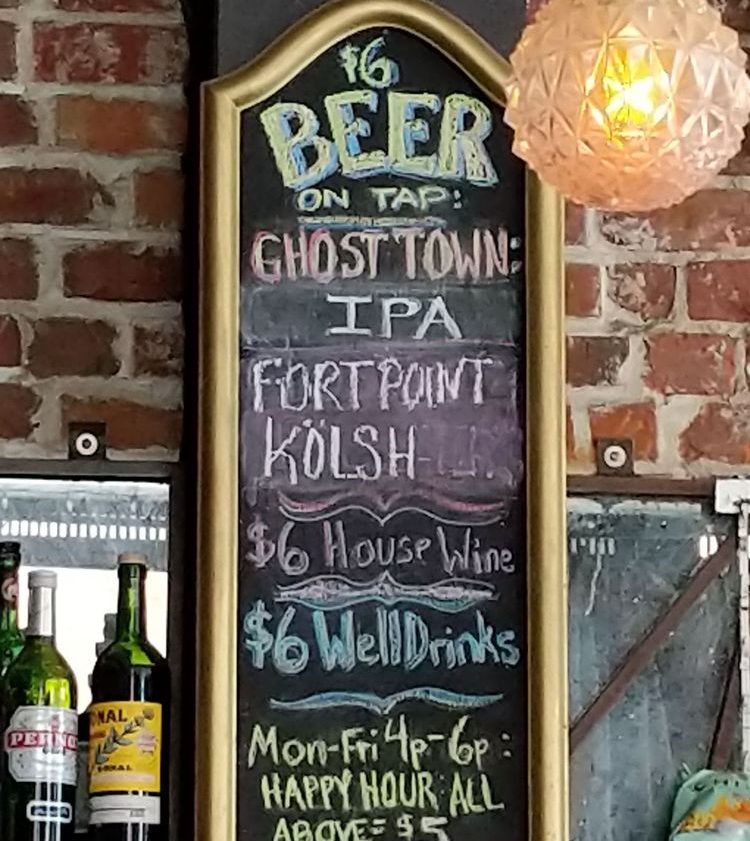 $6
BEER
ON TAP:
GHOST TOWN:
IPA
FORT POINT
KÖLSH
$6 House Wine
$6 Well Drinks
Mon-Fri 4p-6p:
HAPPY HOUR: ALL
ABOVE = $5
PERNO
ONAL